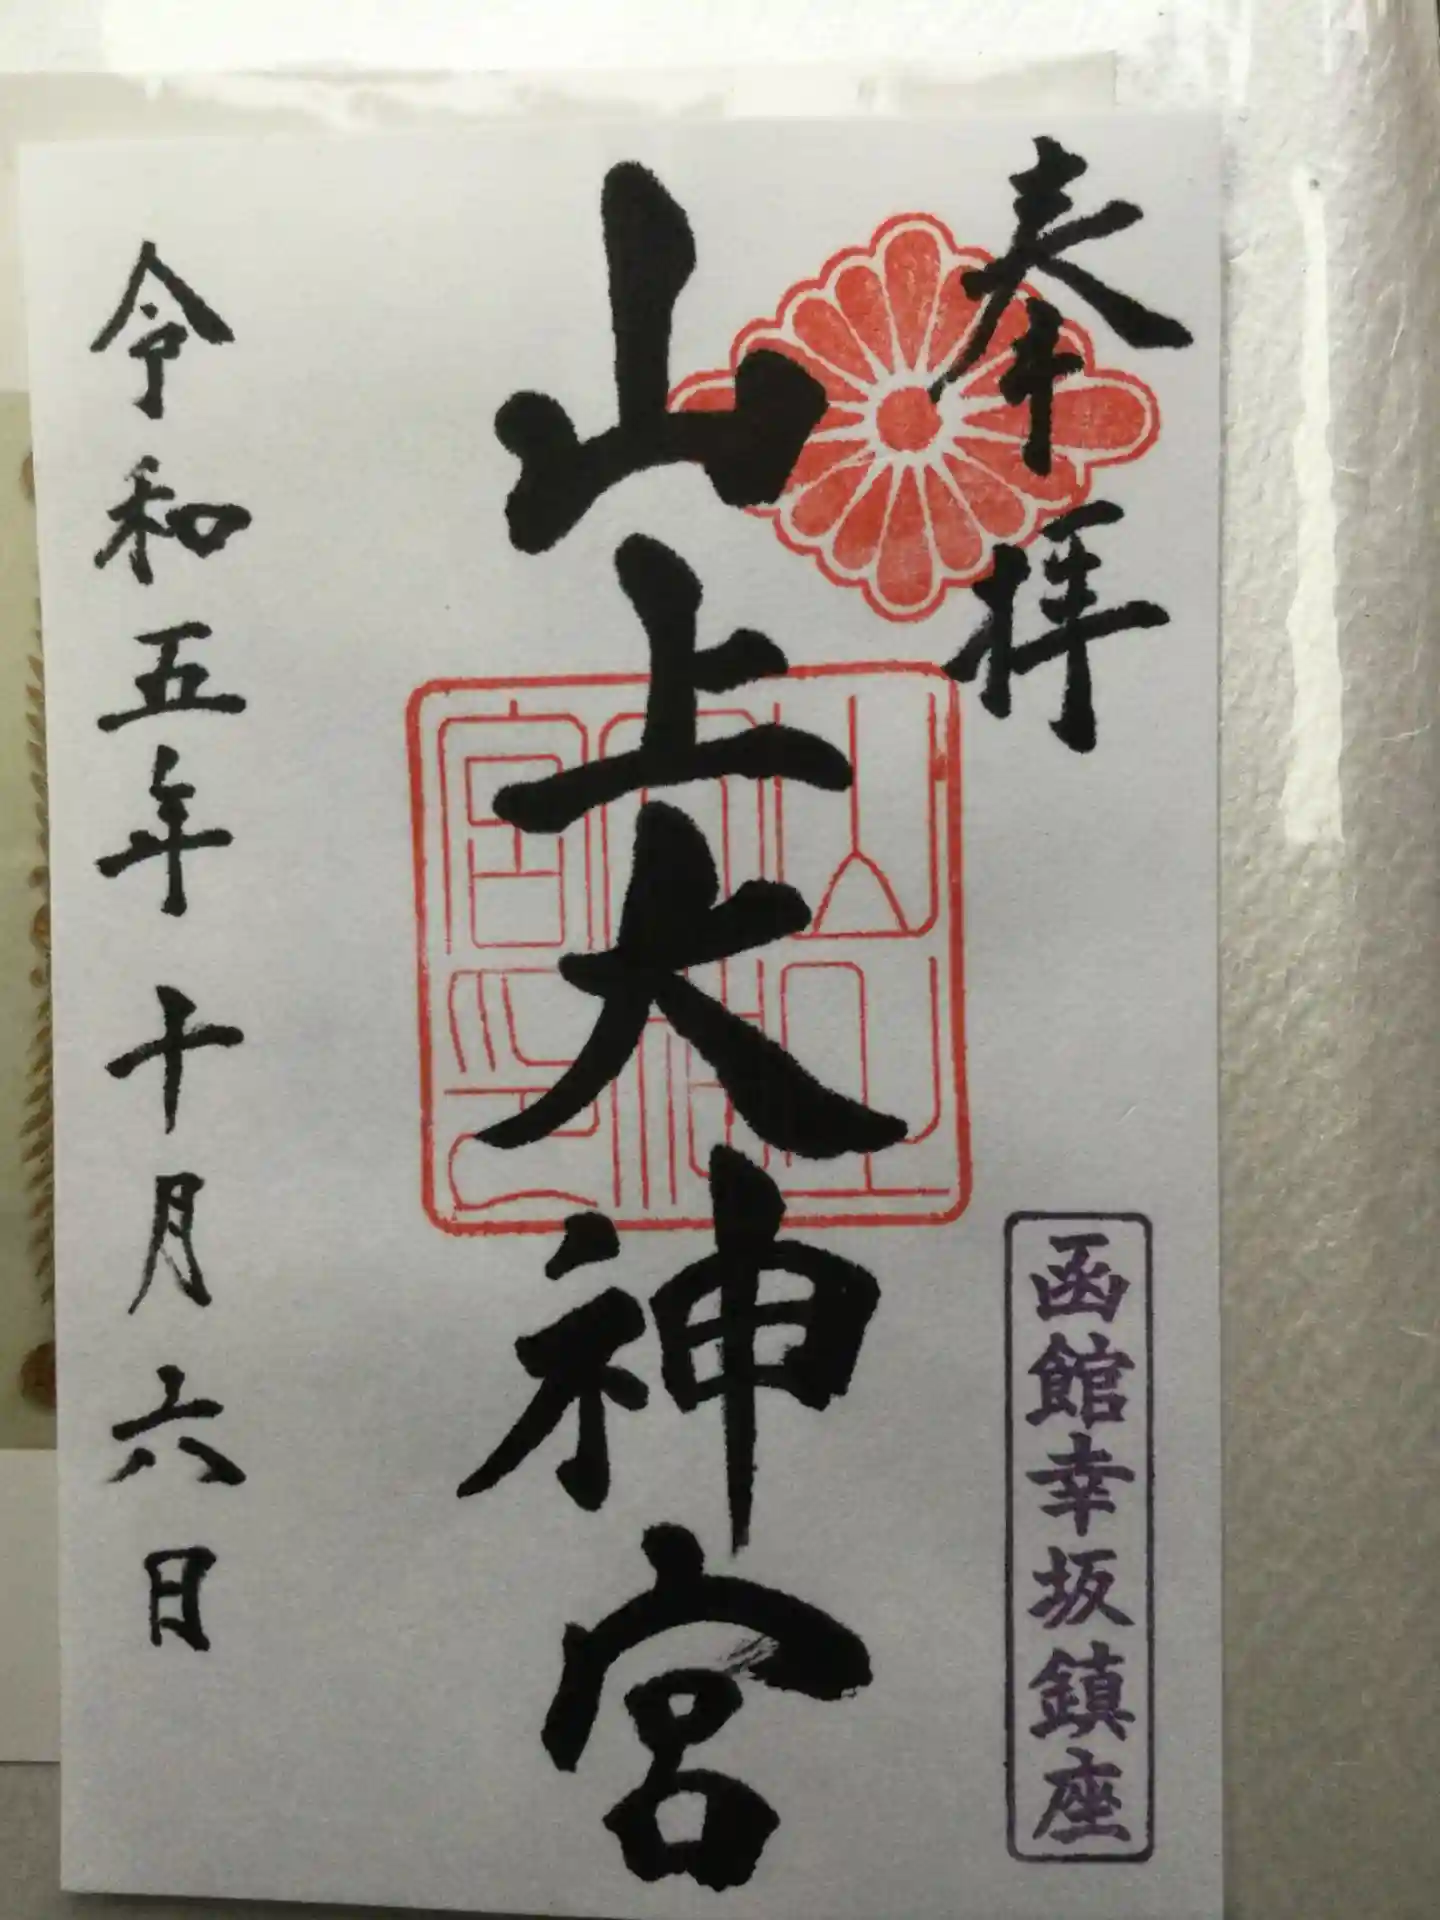 奉拝
函館幸坂鎮座
山上大神宮
令和五年十月六日